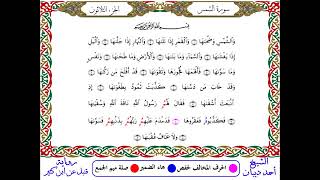 سورة الشمس
الجزء الثلاثون
بسم الله الرحمن الرحيم
وَالشَّمْسِ وَضُحَىٰهَا ۝ وَالْقَمَرِ إِذَا تَلَىٰهَا ۝ وَالنَّهَارِ إِذَا جَلَّىٰهَا ۝ وَالَّيْلِ
إِذَا يَغْشَىٰهَا ۝ وَالسَّمَآءِ وَمَا بَنَىٰهَا ۝ وَالْأَرْضِ وَمَا طَحَىٰهَا ۝ وَنَفْسٍ
وَمَا سَوَّىٰهَا ۝ فَأَلْهَمَهَا فُجُورَهَا وَتَقْوَىٰهَا ۝ قَدْ أَفْلَحَ مَن زَكَّىٰهَا ۝
وَقَدْ خَابَ مَن دَسَّىٰهَا ۝ كَذَّبَتْ ثَمُودُ بِطَغْوَىٰهَا ۝ إِذِ
انبَعَثَ أَشْقَىٰهَا ۝ فَقَالَ لَهُمُ رَسُولُ اللَّهِ نَاقَةَ اللَّهِ وَسُقْيَٰهَا ۝
فَكَذَّبُوهُ فَعَقَرُوهَا فَدَمْدَمَ عَلَيْهِمْ رَبُّهُم بِذَنبِهِمْ فَسَوَّىٰهَا ۝
وَلَا يَخَافُ عُقْبَٰهَا ۝
الشيخ أحمد ديبان
الحرف المخالف لحفص
هاء الضمير
صلة ميم الجمع
رواية قنبل عن ابن كثير